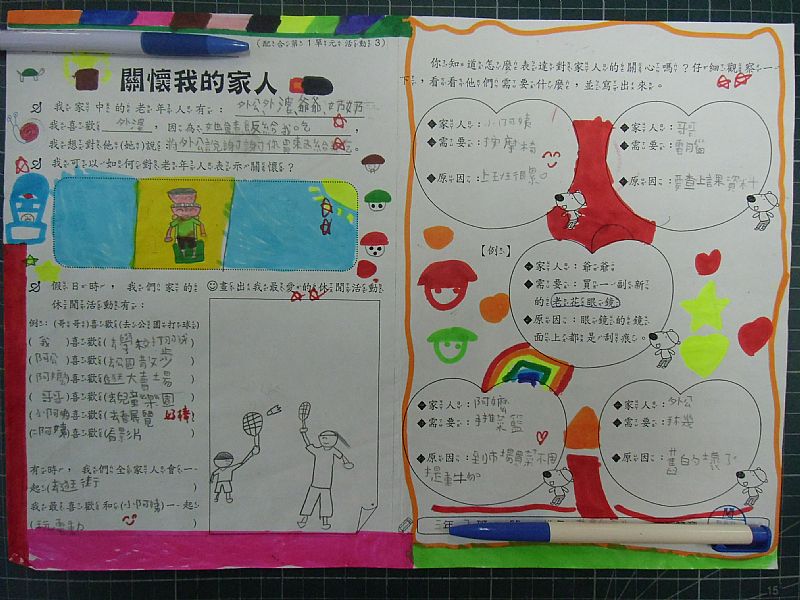 (配合第1單元活動3)
關懷我的家人
我家中的老年人有：外公外婆、爺爺、奶奶
我喜歡 外婆，因為 她會煮飯給我吃
我想對他(她)說 將外公說謝謝你買東西給我吃。
我可以如何對老年人表示關懷？
假日時，我們家的休閒活動有：
☺畫出我最愛的休閒活動
例：(哥哥)喜歡(去公園打球)
(我)喜歡(去學校打羽球)
(阿公)喜歡(去公園散步)
(阿嬤)喜歡(逛大賣場)
(哥哥)喜歡(去兒童樂園)
(小阿姨)喜歡(去看展覽) 好棒
(二阿姨)喜歡(看影片)
有時，我們全家人會一起(去逛街)
我最喜歡和(小阿姨)一起(玩電動)
你知道怎麼表達對家人的關心嗎？仔細觀察一下，看看他們需要什麼，並寫出來。
◆家人：小阿姨
◆需要：按摩椅
◆原因：上班很累
◆家人：哥哥
◆需要：電腦
◆原因：要查上課資料
【例】
◆家人：爺爺
◆需要：買一副新的老花眼鏡
◆原因：眼鏡的鏡面上都是刮痕。
◆家人：阿嬤
◆需要：推菜籃
◆原因：到市場買菜不用提重物
◆家人：外公
◆需要：
◆原因：舊的壞了
15